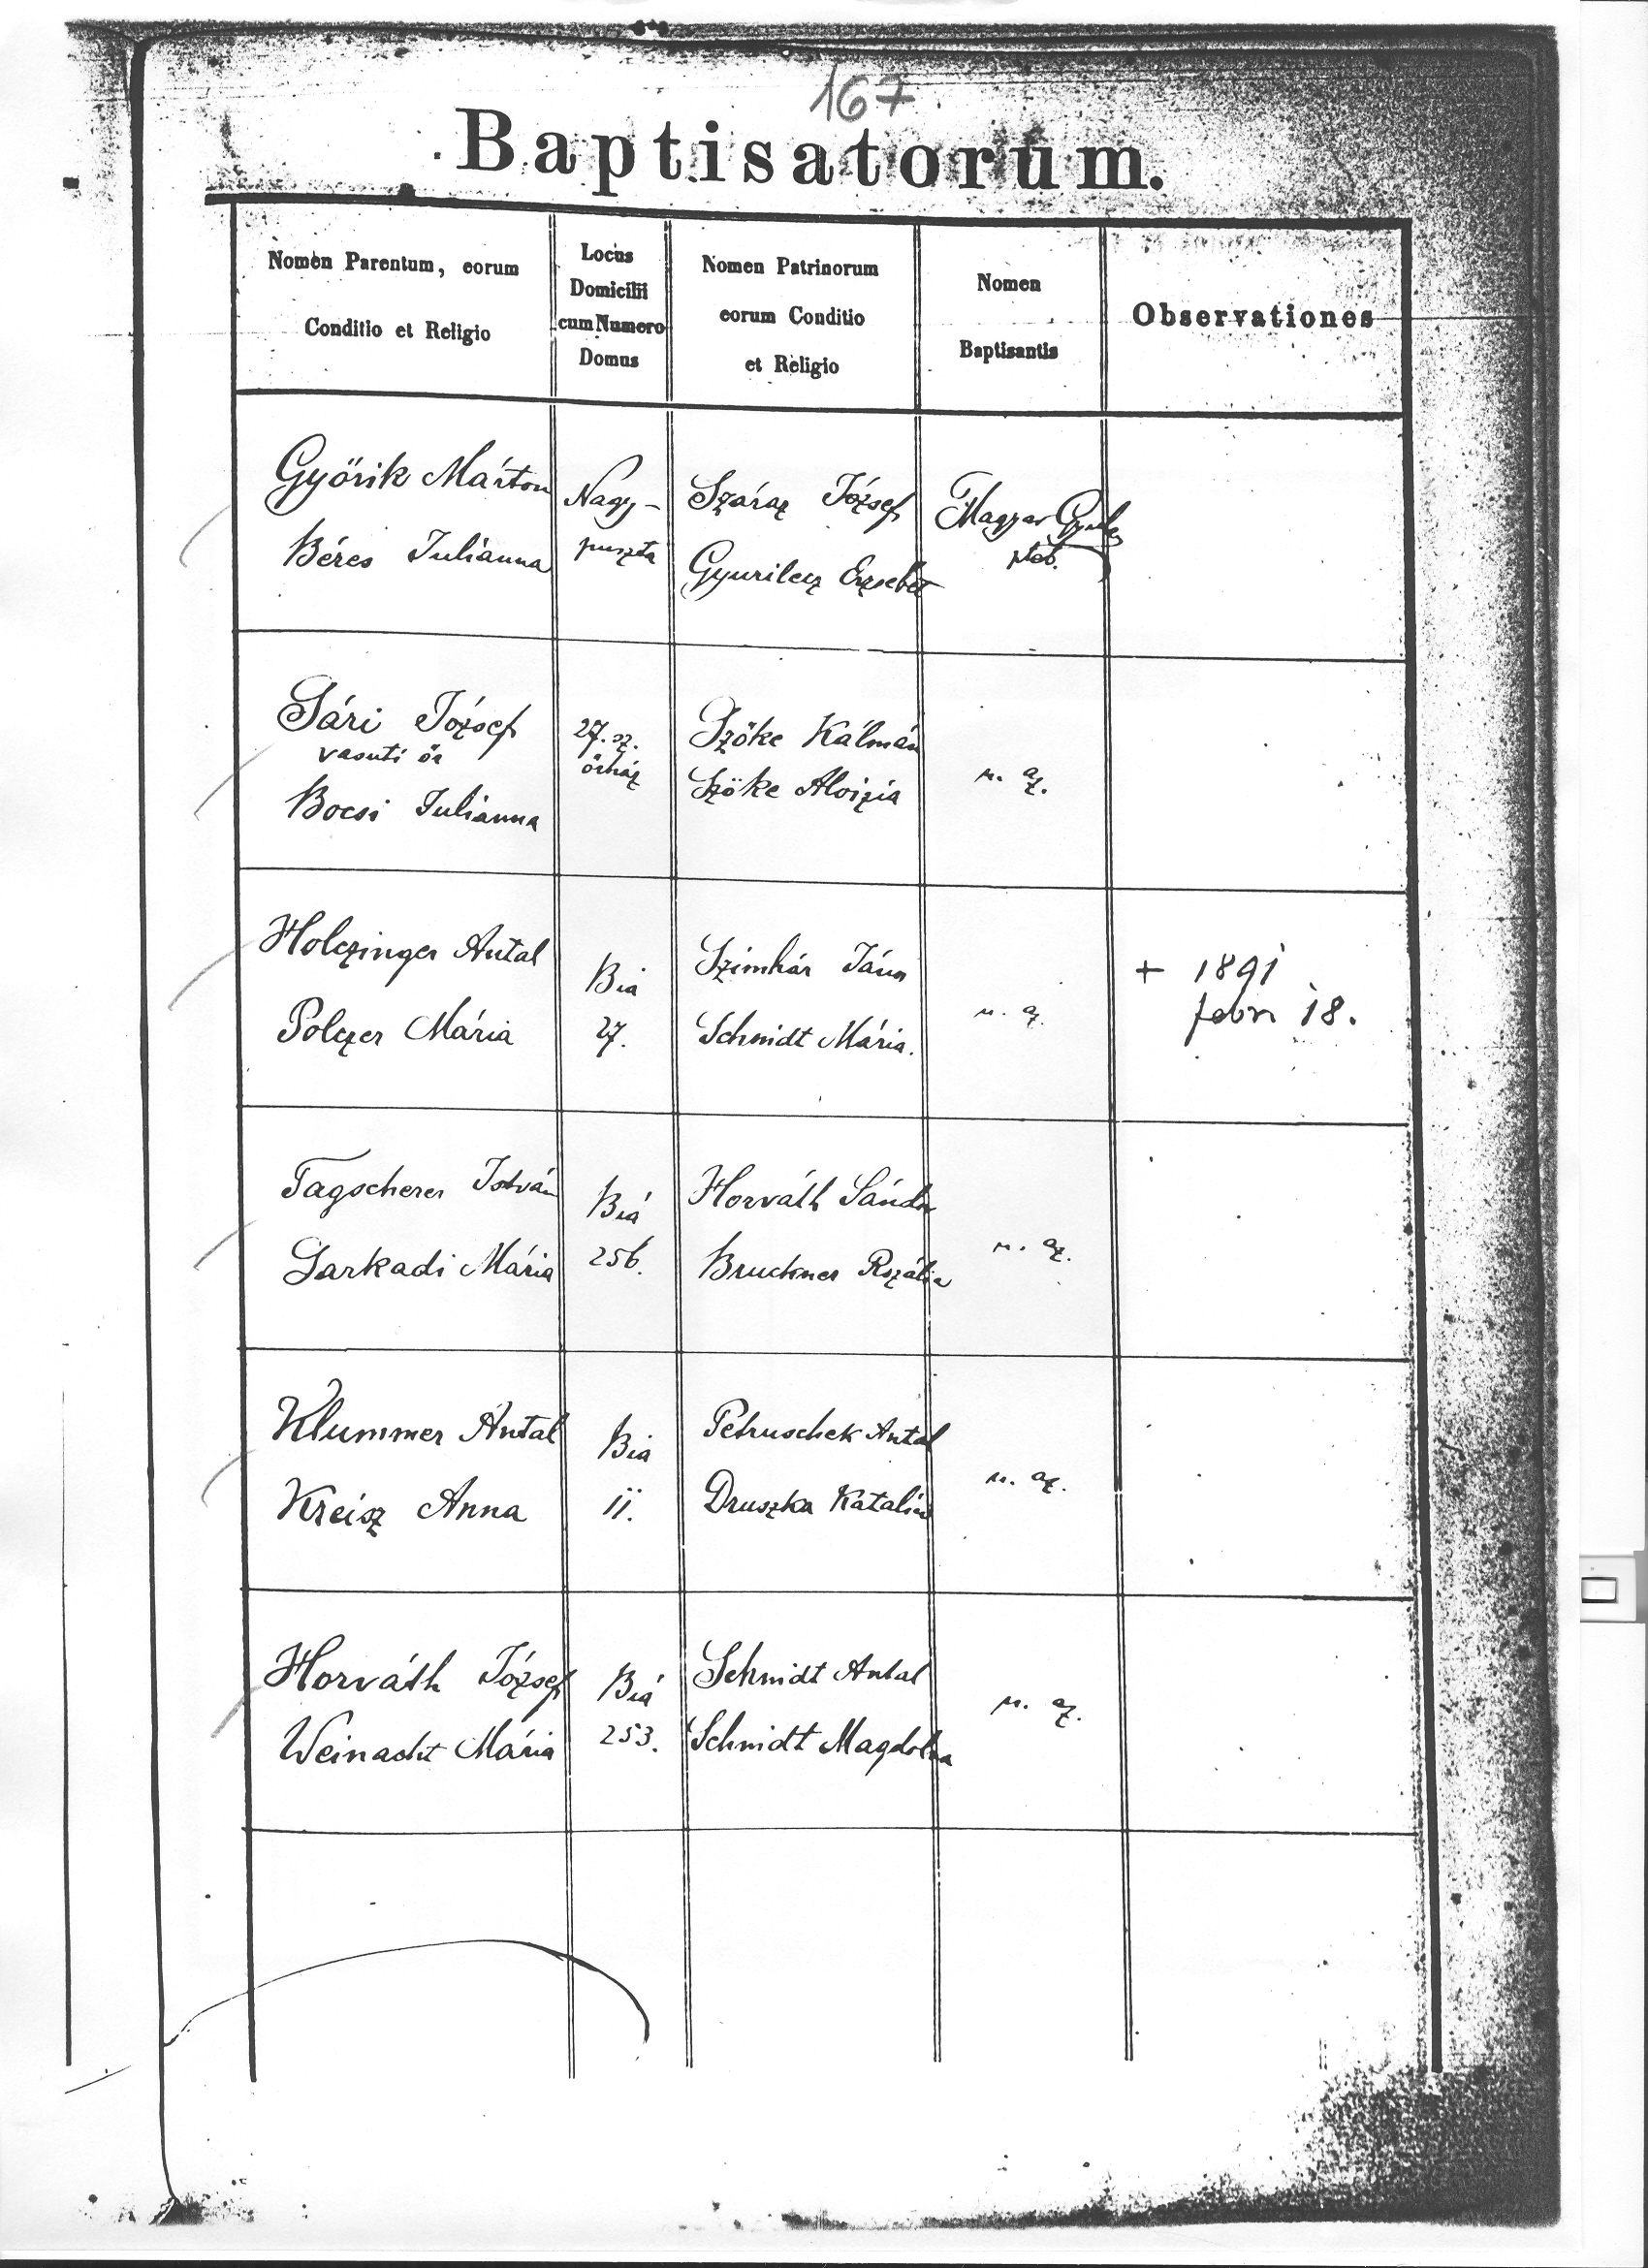 167
Baptisatorum.
Nomen Parentum, eorum
Conditio et Religio
Locus
Domicilii
cum Numero
Domus
Nomen Patrinorum
eorum Conditio
et Religio
Nomen
Baptisantis
Observationes
Győrik Márton
Béres Julianna
Nagy-
puszta
Száraz József
Gyurilecz Erzsébet
Magyar Gyula
pleb.
Sári József
vasuti őr
Bocsi Julianna
27. sz.
őrház
Szőke Kálmán
Szőke Aloizia
u. az.
Holczinger Antal
Polczer Mária
Bia
27.
Szimhár János
Schmidt Mária.
u. a.
+ 1891
febr 18.
Tagscherer István
Sarkadi Mária
Biá
256.
Horváth Sándor
Bruckner Rozália
u. az.
Klummer Antal
Kreisz Anna
Bia
11.
Petruschek Antal
Druszka Katalin
u. az.
Horváth József
Weinacht Mária
Biá
253.
Schmidt Antal
Schmidt Magdolna
u. az.